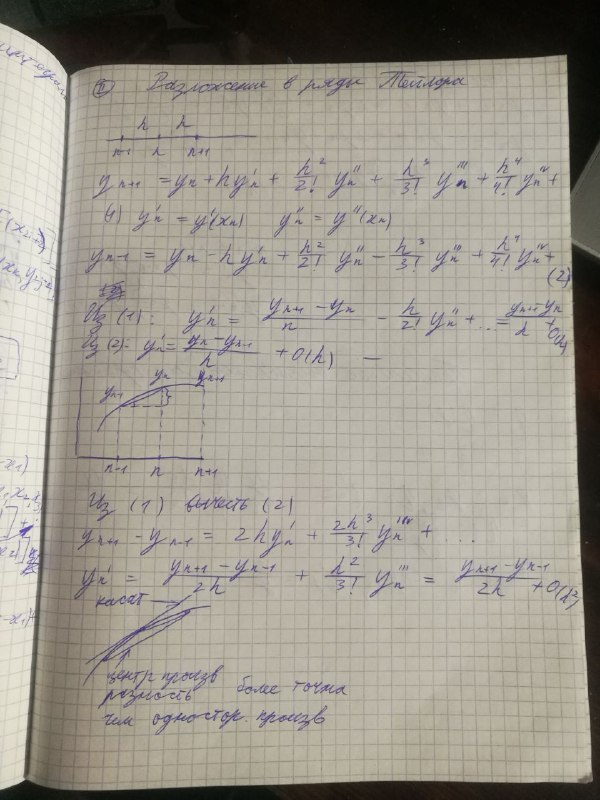 II Разложение в ряды Тейлора
h h
n-1 n n+1
y_{n+1} = y_n + hy'_n + h²/2! y''_n + h³/3! y'''_n + h⁴/4! y^{IV}_n +
(1) y'_n = y'(x_n) y''_n = y''(x_n)
y_{n-1} = y_n - hy'_n + h²/2! y''_n - h³/3! y'''_n + h⁴/4! y^{IV}_n + (2)
Из (1): y'_n = (y_{n+1} - y_n)/h - h/2! y''_n + ... = (y_{n+1} - y_n)/h + O(h)
Из (2): y'_n = (y_n - y_{n-1})/h + O(h) —
y_{n-1} y_n y_{n+1}
n-1 n n+1
Из (1) вычесть (2)
y_{n+1} - y_{n-1} = 2hy'_n + 2h³/3! y'''_n + ...
y'_n = (y_{n+1} - y_{n-1})/2h + h²/3! y'''_n = (y_{n+1} - y_{n-1})/2h + O(h²)
касат
центр произв
разность более точна
чем одностор. произв